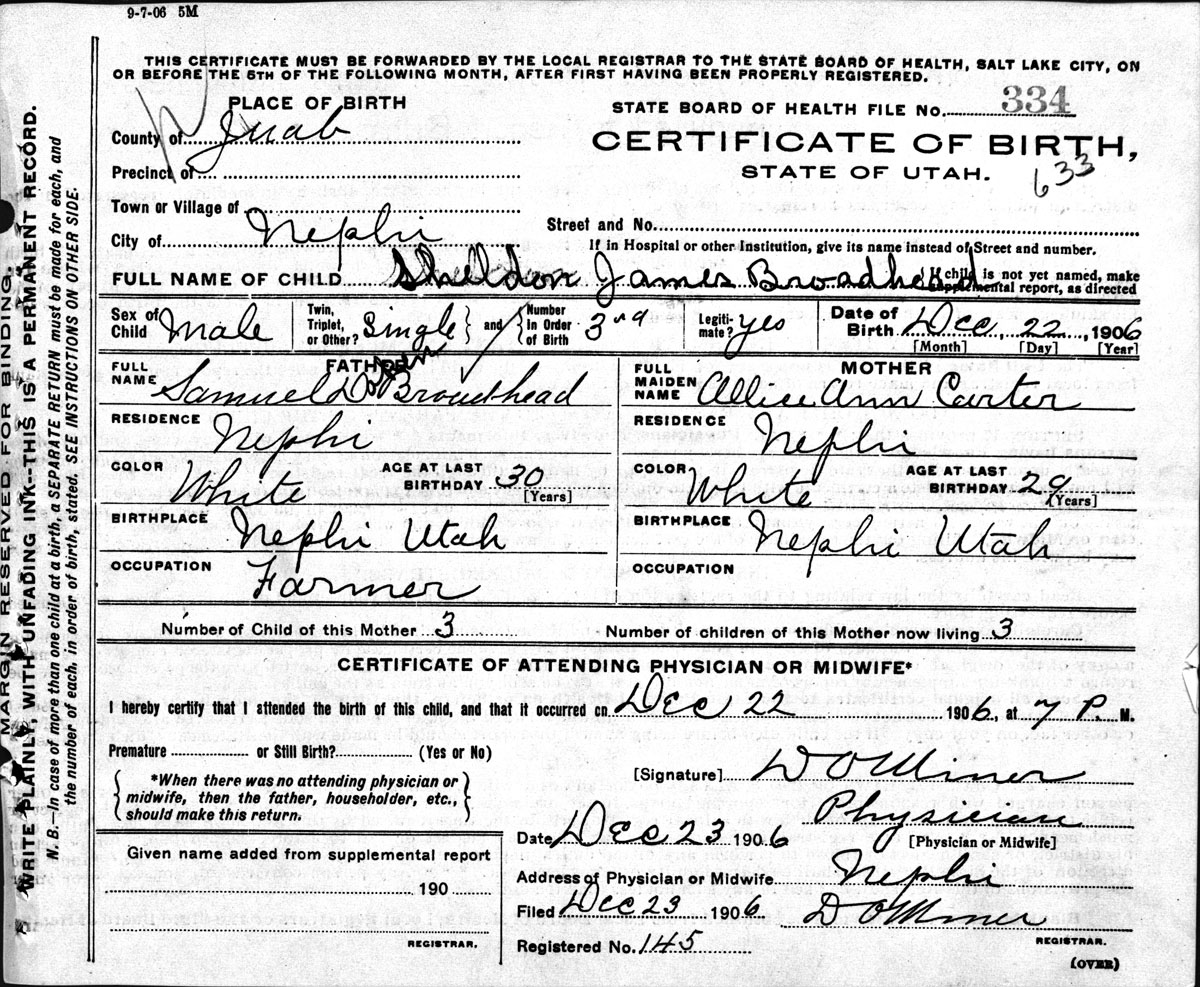 9-7-06 5M
THIS CERTIFICATE MUST BE FORWARDED BY THE LOCAL REGISTRAR TO THE STATE BOARD OF HEALTH, SALT LAKE CITY, ON
OR BEFORE THE 5TH OF THE FOLLOWING MONTH, AFTER FIRST HAVING BEEN PROPERLY REGISTERED.
PLACE OF BIRTH
STATE BOARD OF HEALTH FILE No. 334
County of Juab
CERTIFICATE OF BIRTH,
Precinct of
STATE OF UTAH.
633
Town or Village of
Street and No.
City of Nephi
If in Hospital or other Institution, give its name instead of Street and number.
FULL NAME OF CHILD Sheldon James Broadhead
If child is not yet named, make
supplemental report, as directed
Sex of Child Male
Twin, Triplet, or Other? Single and Number in Order of Birth 3rd
Legitimate? yes
Date of Birth Dec, 22, 1906
[Month] [Day] [Year]
FATHER
FULL NAME Samuel D Broadhead
RESIDENCE Nephi
COLOR White AGE AT LAST BIRTHDAY 30 [Years]
BIRTHPLACE Nephi Utah
OCCUPATION Farmer
MOTHER
FULL MAIDEN NAME Allice Ann Carter
RESIDENCE Nephi
COLOR White AGE AT LAST BIRTHDAY 29 [Years]
BIRTHPLACE Nephi Utah
OCCUPATION
Number of Child of this Mother 3 Number of children of this Mother now living 3
CERTIFICATE OF ATTENDING PHYSICIAN OR MIDWIFE*
I hereby certify that I attended the birth of this child, and that it occurred on Dec 22 1906, at 7 P. M.
Premature or Still Birth? (Yes or No)
*When there was no attending physician or
midwife, then the father, householder, etc.,
should make this return.
[Signature] D O Miner
Physician
[Physician or Midwife]
Date Dec 23 1906
Given name added from supplemental report
190
REGISTRAR.
Address of Physician or Midwife Nephi
Filed Dec 23 1906 D O Miner
REGISTRAR.
Registered No. 145
(OVER)
MARGIN RESERVED FOR BINDING.
WRITE PLAINLY, WITH UNFADING INK--THIS IS A PERMANENT RECORD.
N. B.—In case of more than one child at a birth, a SEPARATE RETURN must be made for each, and
the number of each, in order of birth, stated. SEE INSTRUCTIONS ON OTHER SIDE.